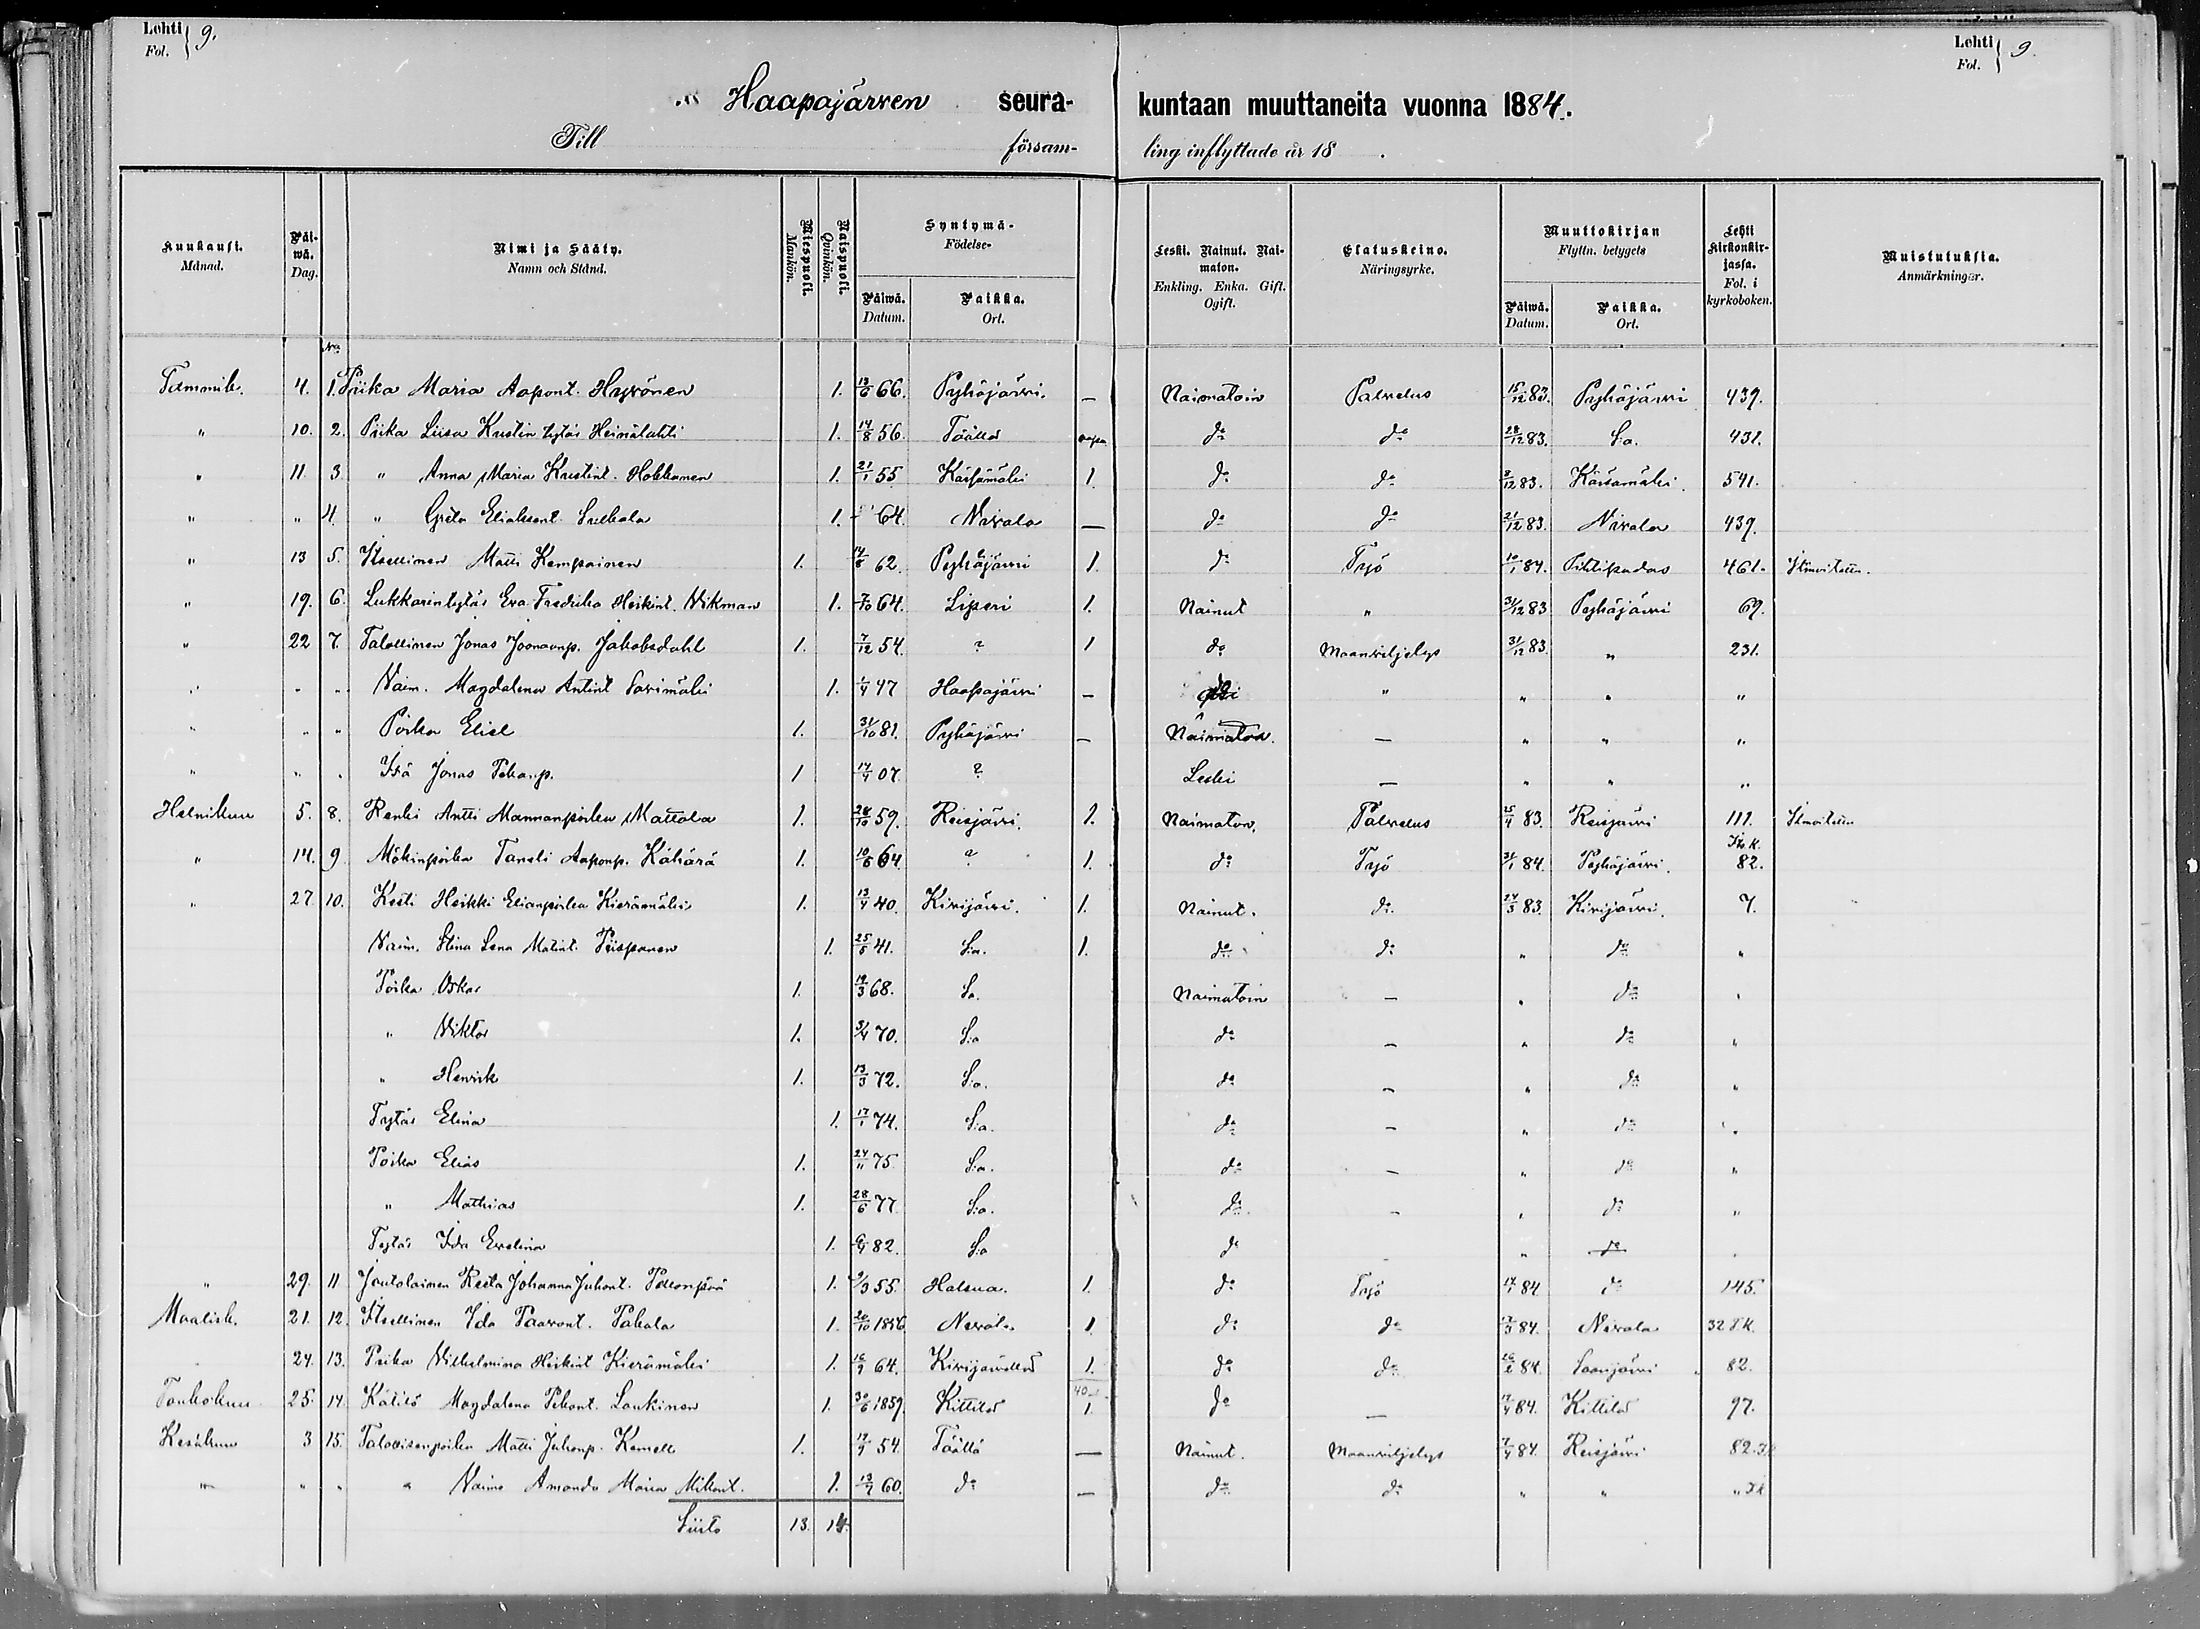 Lehti Fol. 9.
Lehti Fol. 9.
Haapajärven seura-kuntaan muuttaneita vuonna 1884.
Till församling inflyttade år 18 .
Kuukausi. Månad.
Päiwä. Dag.
Nimi ja Sääty. Namn och Stånd.
Miespuoli. Mankön.
Naispuoli. Qvinkön.
Syntymä- Födelse-
Päiwä. Datum.
Paikka. Ort.
Leski. Nainut. Naimaton. Enkling. Enka. Gift. Ogift.
Elatuskeino. Näringsyrke.
Muuttokirjan Flyttn. betygets
Päiwä. Datum.
Paikka. Ort.
Lehti kirkonkirjassa. Fol. i kyrkoboken.
Muistutuksia. Anmärkningar.
No
Tammik. 4. 1. Piika Maria Aapont. Hyvönen 1. 13/6 66. Pyhäjärvi. — Naimatoin Palvelus 15/12 83. Pyhäjärvi 439.
" 10. 2. Piika Liisa Kustin tytär Heinälahti 1. 14/8 56. Täällä do do 28/12 83. S:a. 431.
" 11 3. " Anna Maria Kustint. Hokkanen 1. 21/1 55 Kärsämäki 1. do do 8/12 83. Kärsämäki 541.
" " 4. " Greta Eliaksent. 1. 64. Nivala — do do 21/12 83. Nivala 439.
" 13 5. Itsellinen Matti Kemppainen 1. 14/8 62. Pyhäjärvi 1. do Työ 10/1 84. Pihtipudas 461.
" 19. 6. Lukkarintytär Eva Fredrika Heikint. Wikman 1. 7/10 64. Liperi 1. Nainut " 31/12 83 Pyhäjärvi 69.
" 22 7. Talollinen Jonas Joonaanp. Jakobsdahl 1. 7/12 54. ? 1 do Maanviljelys 31/12 83. " 231.
" " " Vaim. Magdalena Antint Savimäki 1. 1/4 47 Haapajärvi — " " " "
" " " Poika Eliel 1. 31/10 81. Pyhäjärvi — Naimaton. — " " "
" " " Isä Jonas Pekanp. 1 14/4 07. ? Leski — " " "
Helmikuu 5. 8. Renki Antti Mannanpoika Mattala 1. 28/10 59. Reisjärvi. 1. Naimaton. Palvelus 25/4 83. Reisjärvi 111.
" 14. 9 Mökinpoika Taneli Aaponp. Kähärä 1. 10/6 64 ? 1. do Työ 31/1 84. Pyhäjärvi. 82.
" 27. 10. Kesti Heikki Elianpoika Kierämäki 1. 13/4 40. Kivijärvi. 1. Nainut. do 27/3 83. Kivijärvi. 7.
Vaim. Stina Lena Matint. Piispanen 1. 25/5 41. S:a. 1. do do " do "
Poika Oskar 1. 19/3 68. S:a. Naimatoin — " do "
" Viktor 1. 3/4 70. S:a do — " do "
" Henrik 1. 13/3 72. S:a. do — " do "
Tytär Elina 1. 17/1 74. S:a. do — " do "
Poika Elias 1. 24/11 75 S:a. do — " do "
" Mathias 1. 28/6 77. S:a. do — " do "
Tytär Ida Evelina 1. 82. S:a do " do
" 29. 11 Joutolainen Reeta Johanna Juhont. 1. 9/3 55. Halsua. 1. do Työ 17/1 84 do 145.
Maalisk. 21. 12. Itsellinen Ida Paavont. Pakala 1. 20/10 1856 Nivala 1 do do 17/3 84. Nivala 328 K.
24. 13. Piika Vilhelmina Heikint Kierämäki 1. 16/9 64. Kivijärvellä 1. do do 26/2 84. Saarijärvi 82.
Toukokuu 25. 14. Kätilö Magdalena Pekant. Laukinen 1. 30/6 1859. Kittilä 1. do — 17/4 84. Kittilä 97.
Kesäkuu 3 15. Talollisenpoika Matti Juhonp. Kemell 1. 17/9 54. Täällä — Nainut. Maanviljelys 7/4 84. Reisjärvi 82.
" " " " Vaimo Amanda Maria Mikont. 1. 13/7 60. do — do do " " "
Siirto 13. 14.